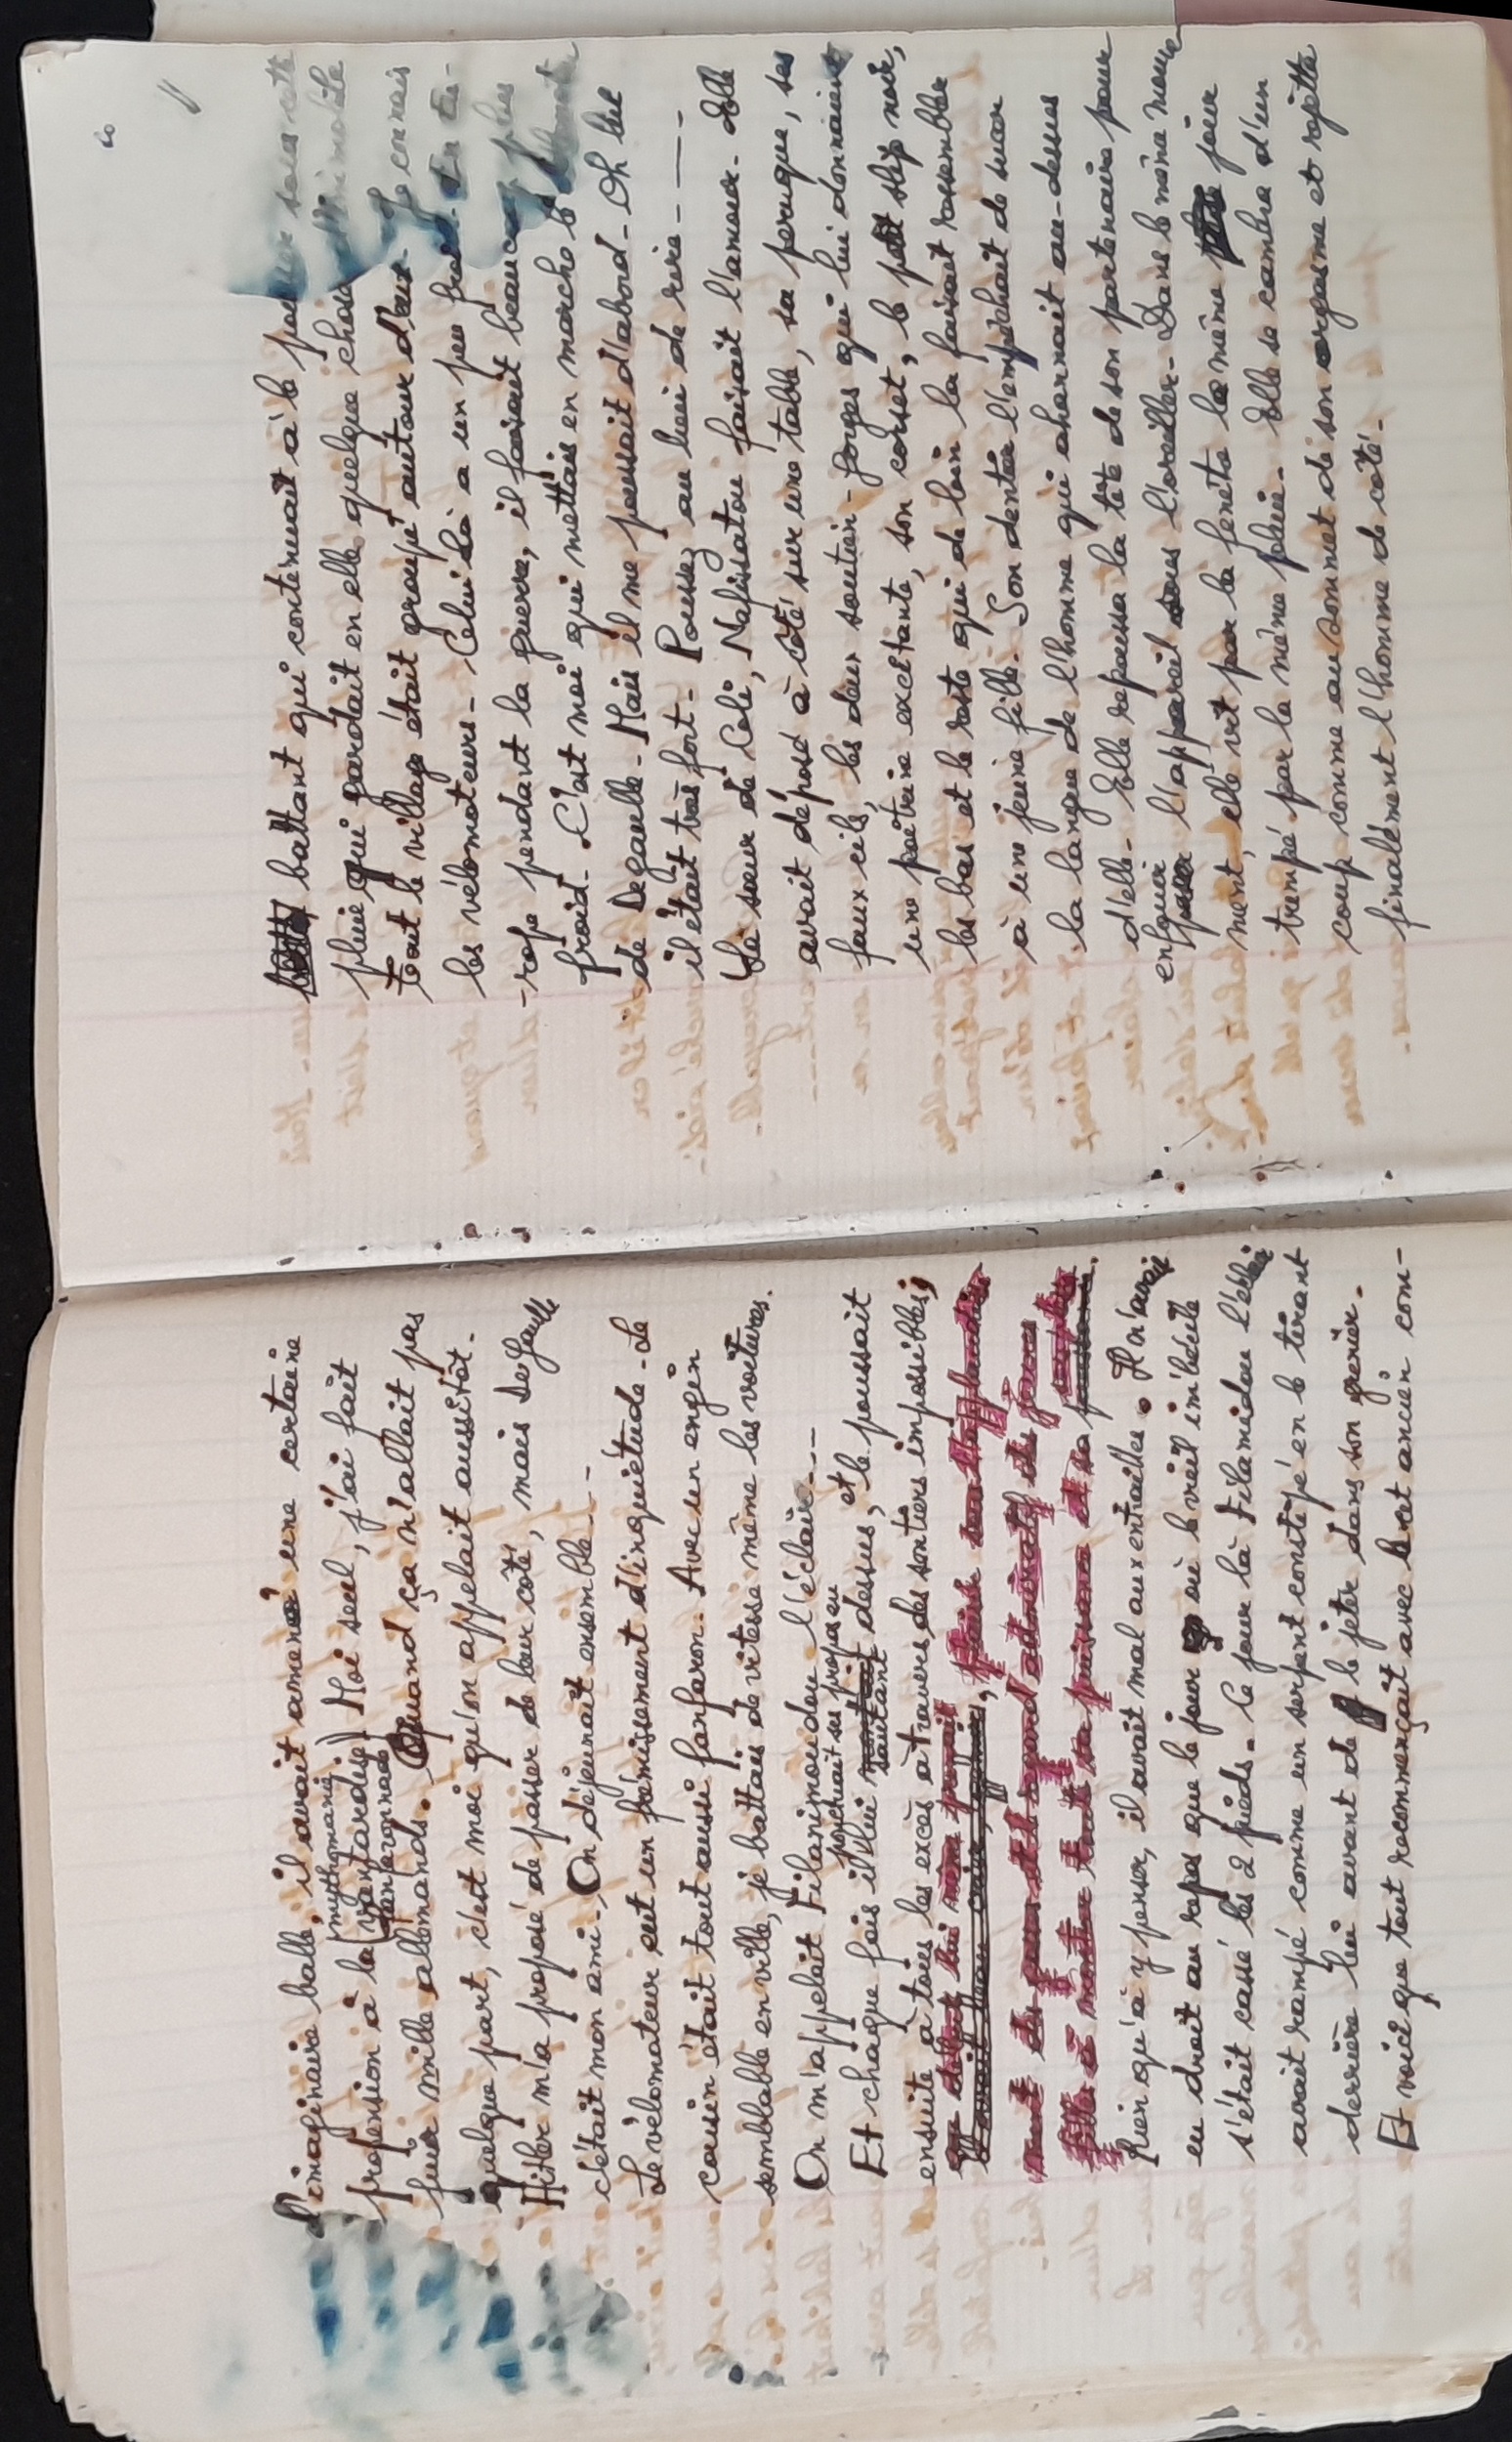 l'imaginaire balle, il avait amené une certaine
propension à la (vantardise) Moi seul, j'ai fait
mythomanie
fanfaronnade
fuir mille allemands. Quand ça n'allait pas
quelque part, c'est moi qu'on appelait aussitôt.
Hitler m'a proposé de passer de leur côté, mais De Gaulle
c'était mon ami. On déjeunait ensemble ---
Le vélomoteur eut un frémissement d'inquiétude. Le
cousin était tout aussi fanfaron. Avec un engin
semblable en ville, je battais de vitesse même les voitures.
On m'appelait Filanimoudou l'éclair ---
Et chaque fois il lui sautant dessus, et le poussait
ensuite à tous les excès à travers des sentiers impossibles,
Rien qu'à y penser, il avait mal aux entrailles. Il n'avait
eu droit au repos que le jour où le vieil imbécile
s'était cassé les 2 pieds. Ce jour là Filamidou
avait rampé comme un serpent constipé en le tirant
derrière lui avant de le jeter dans son grenier.
Et voici que tout recommençait avec cet ancien com-
battant qui continuait à le
pluie qui gardait en elle quelque chose
tout le village était groupé autour d'eux. Je connais
les vélomoteurs. Celui là a un peu
-rope pendant la guerre, il faisait beaucoup plus
froid. C'est moi qui mettais en marche le
de De gaulle. Mais il me poussait d'abord. Oh lui
il était très fort. Poussez au lieu de rire. ---
La sœur de Coli, Nafissatou faisait l'amour. Elle
avait déposé à côté sur une table, sa perruque, ses
faux cils, les deux soutien-gorges qui lui donnaient
une poitrine excitante, son corset, le petit slip noir,
les bas et le reste qui de loin la faisait ressembler
à une jeune fille. Son dentier l'empêchait de sucer
la langue de l'homme qui s'acharnait au-dessus
d'elle. Elle repoussa la tête de son partenaire pour
enfouir l'appareil sous l'oreiller. Dans le même mouve
ment, elle vit par la fenêtre le même jour
trempé par la même pluie. Elle se cambra d'un
coup comme au sommet de son orgasme et rejetta
finalement l'homme de côté.